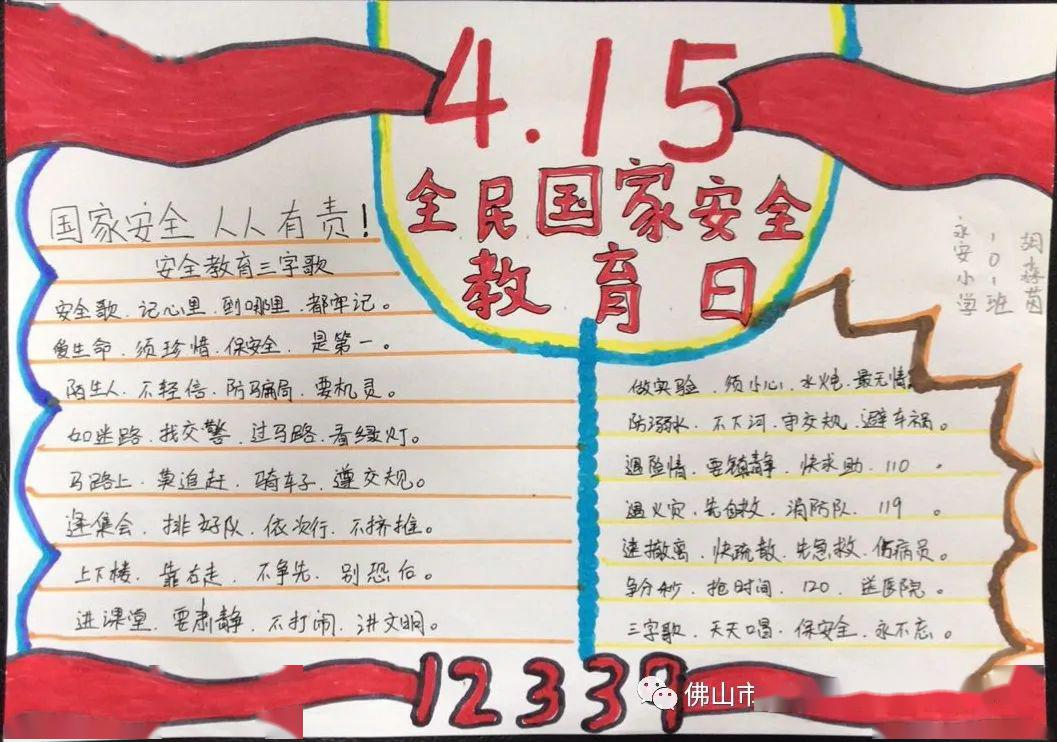 4.15
全民国家安全
教育日
国家安全 人人有责!
安全教育三字歌
安全歌、记心里、到哪里、都牢记。
爱生命、须珍惜、保安全、是第一。
陌生人、不轻信、防骗局、要机灵。
如迷路、找交警、过马路、看绿灯。
马路上、莫追赶、骑车子、遵交规。
逢集会、排好队、依次行、不挤推。
上下楼、靠右走、不争先、别恐后。
进课堂、要肃静、不打闹、讲文明。
做实验、须小心、水火电、最无情。
防溺水、不下河、守交规、避车祸。
遇险情、要镇静、快求助、110。
遇火灾、先自救、消防队、119。
速撤离、快疏散、先急救、伤病员。
争分秒、抢时间、120、送医院。
三字歌、天天唱、保安全、永不忘。
永安小学
101班
胡
茵
12339
佛山市